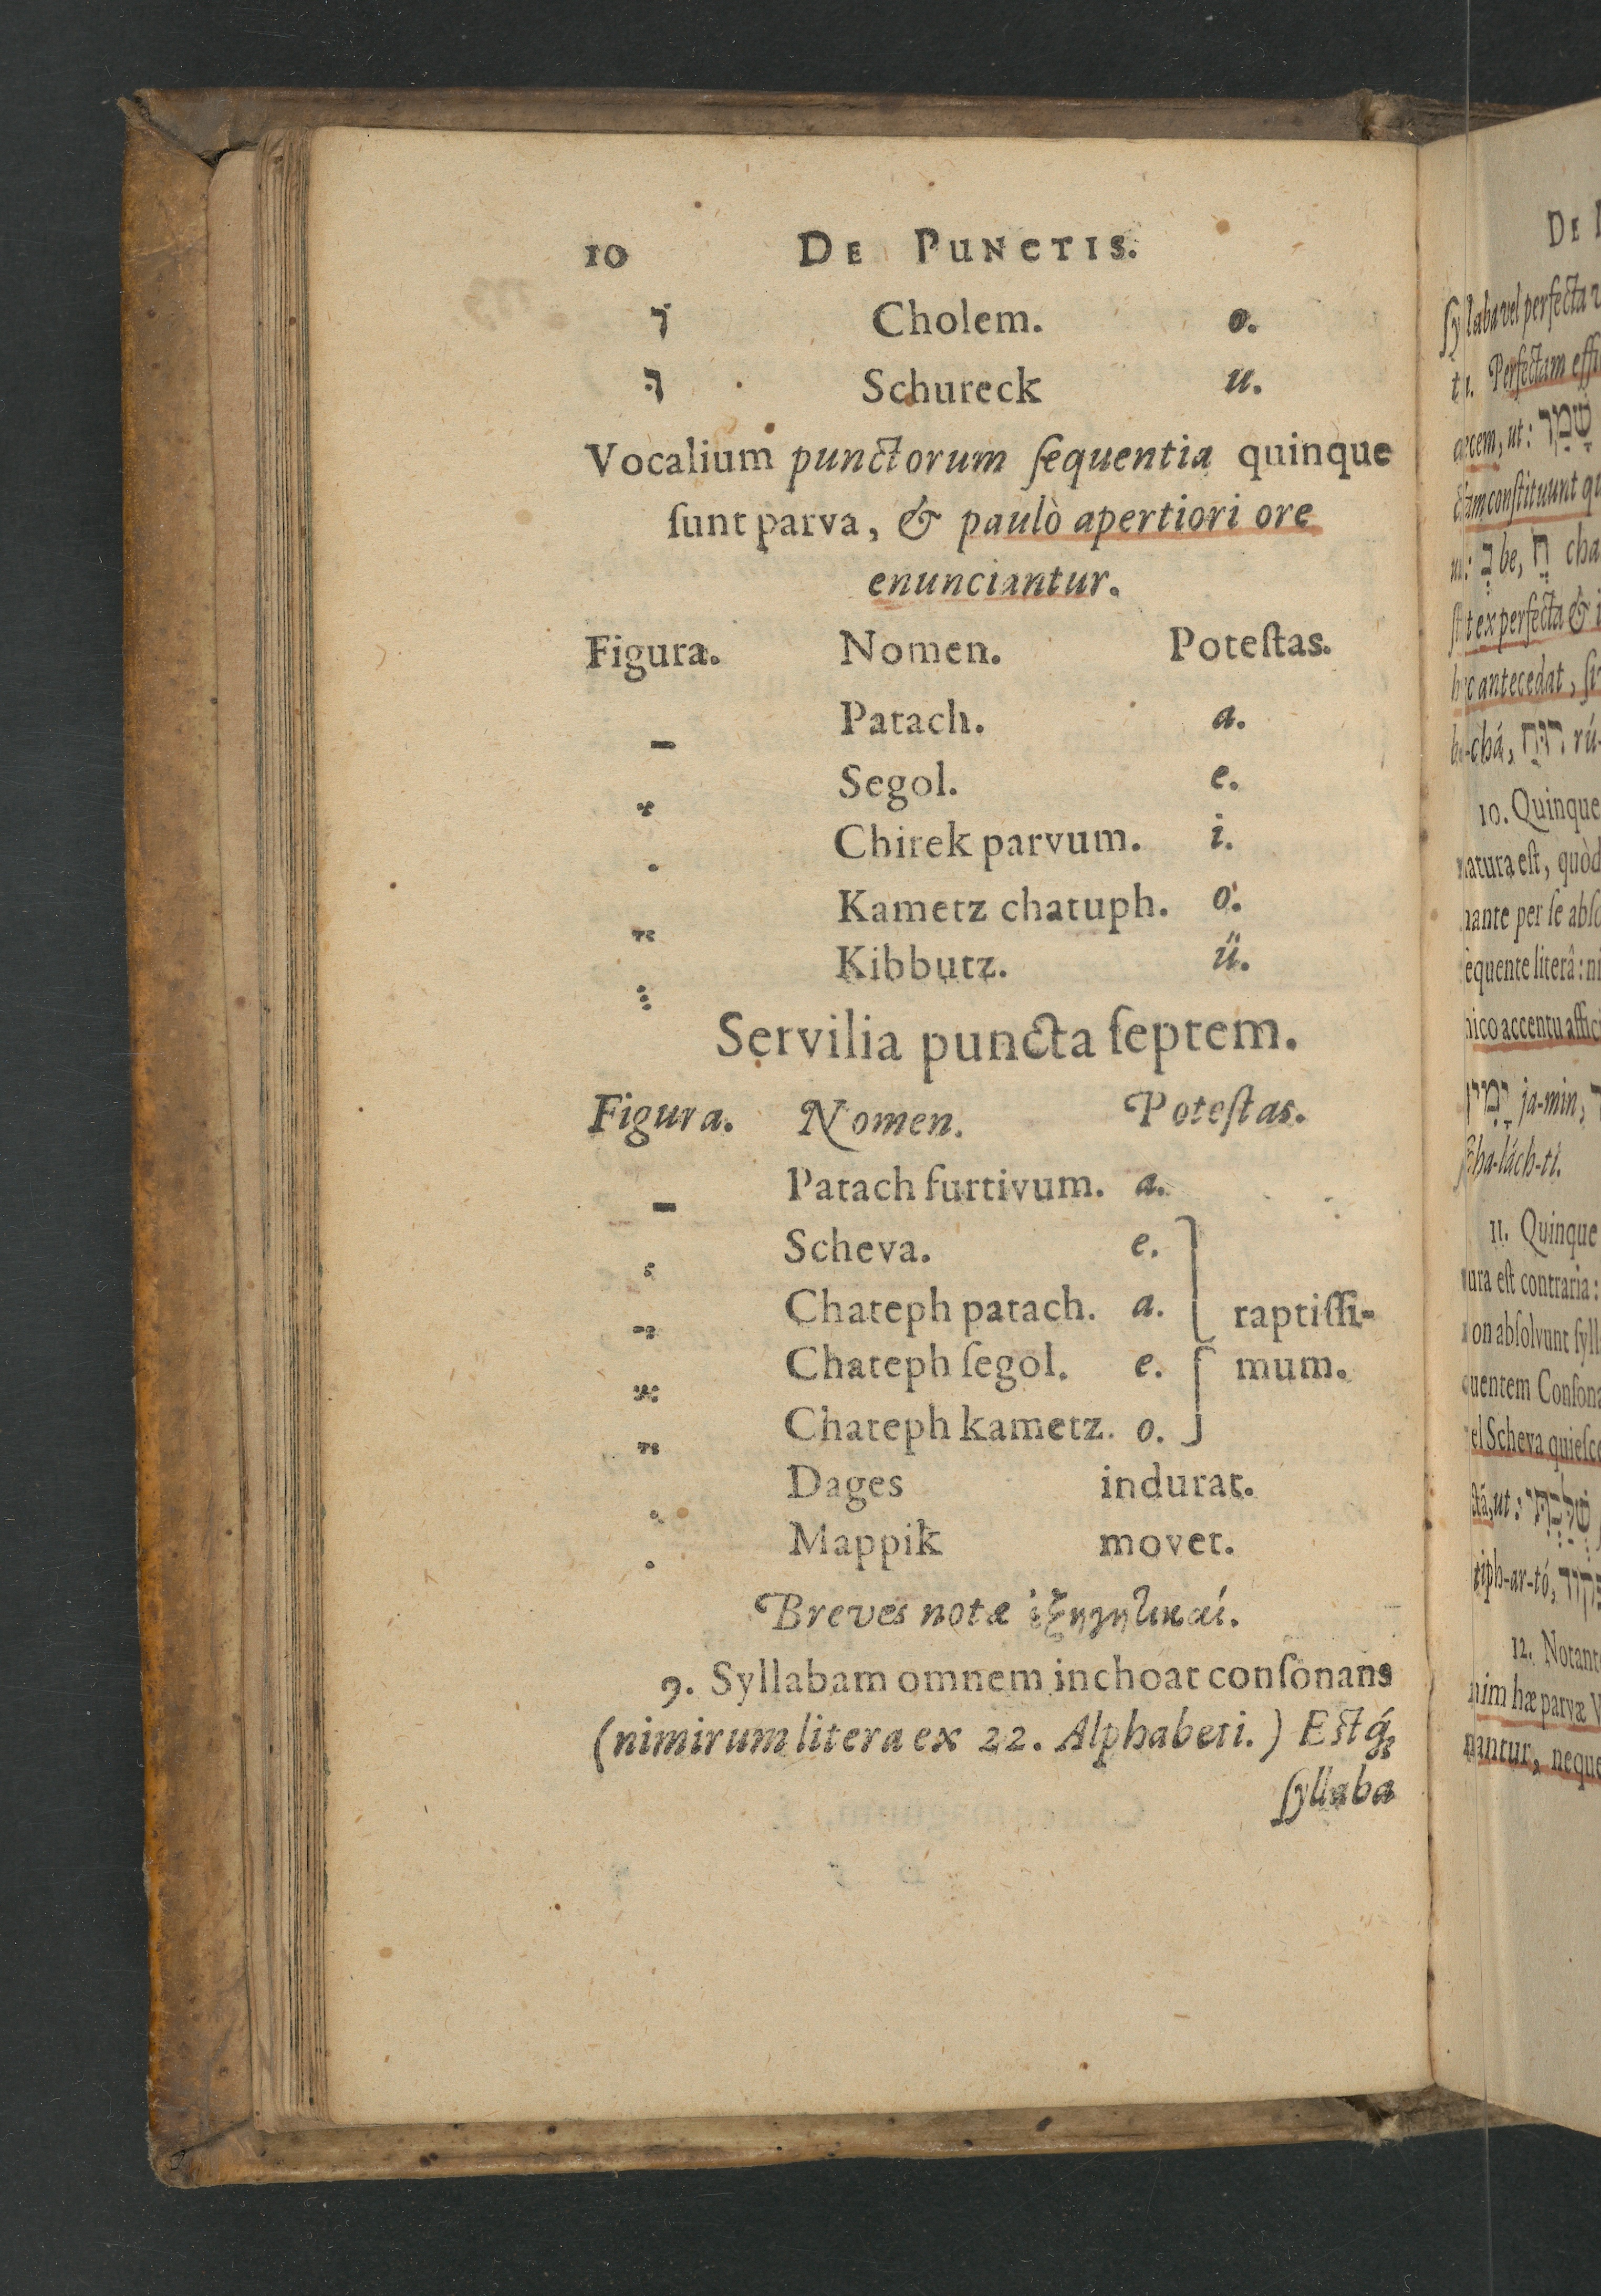 10 DE PUNCTIS.
וֹ Cholem. o.
וּ Schureck u.
Vocalium punctorum ſequentia quinque
ſunt parva, & paulò apertiori ore
enunciantur.
Figura. Nomen. Poteſtas.
ַ Patach. a.
ֶ Segol. e.
ִ Chirek parvum. i.
ָ Kametz chatuph. o.
ֻ Kibbutz. ü.
Servilia puncta ſeptem.
Figura. Nomen. Poteſtas.
ַ Patach furtivum. a.
ְ Scheva. e.
ֲ Chateph patach. a. raptiſſi-
ֱ Chateph ſegol. e. mum.
ֳ Chateph kametz. o.
ּ Dages indurat.
ּ Mappik movet.
Breves notæ ἐξηγητικαί.
9. Syllabam omnem inchoat conſonans
(nimirum litera ex 22. Alphabeti.) Eſtq́;
ſyllaba
DE
ſyllaba vel perfecta
Perfectam
ut: שָׁמַר
conſtituunt
be, cha
ex perfecta &
antecedat,
chá, רוּחַ rú-
10. Quinque
natura eſt, quòd
nante per ſe
ſequente literâ:
accentu
יָמִין ja-min,
ſcha-lách-ti.
11. Quinque
eſt contraria:
abſolvunt
Scheva
ut:
tiph-ar-tó,
12.
hæ parvæ
neque